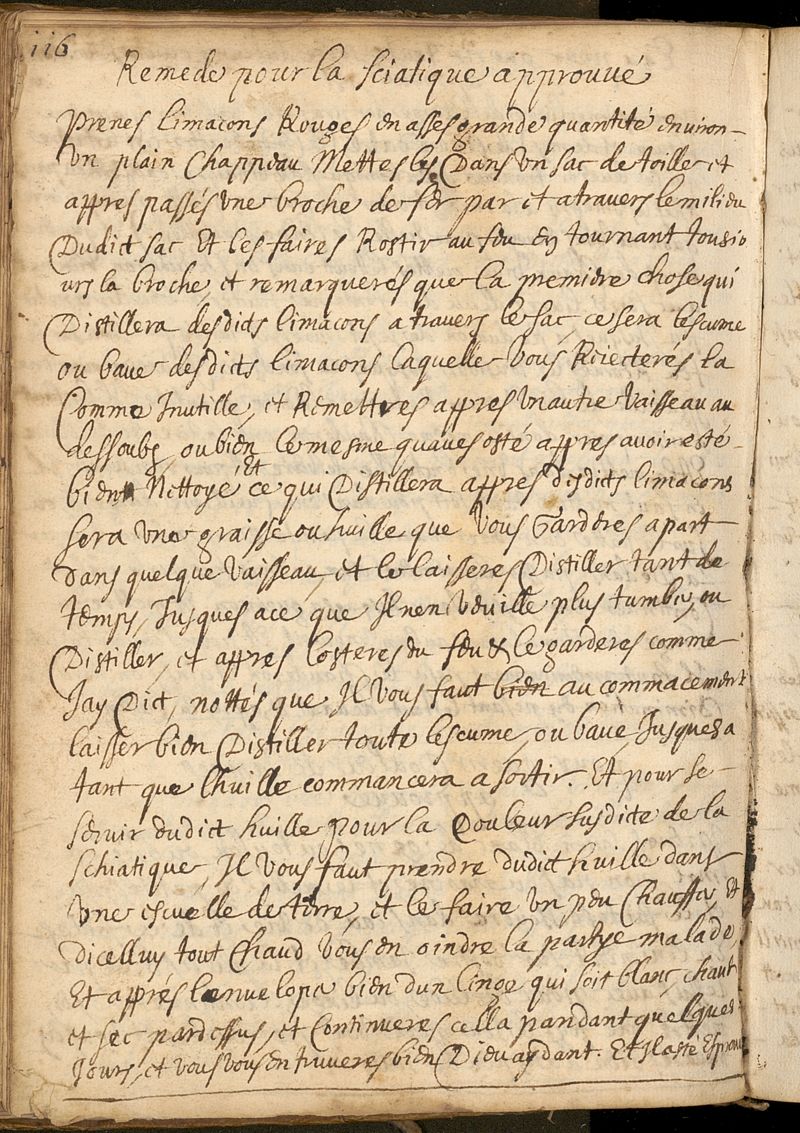 116
Remede pour la sciatique approuué
Prenes limacons Rouges en asses grande quantité enuiron
Vn plain Chappeau Mettes les Dans Vn sac de toille et
appres passés Vne broche de fer par et atrauers le milieu
Dudict sac Et les faires Rostir au feu en tournant tousio
urs la broche, et remarquerés que la premiere chose qui
Distillera desdicts limacons a trauers le sac, ce sera lescume
ou baue desdicts limacons laquelle Vous Reiecterés la
Comme Inutille, et Remettres appres Vn autre Vaisseau au
dessoubz, ou bien le mesme quaues osté appres auoir esté
bien Nettoyé et ce qui Distillera appres desdicts limacons
sera Vne graisse ou huille que Vous Garderes apart
dans quelque Vaisseau, et le laisseres Distiller tant de
temps, Jusques a ce que Il nen Veuille plus tumber, ou
Distiller, et appres losteres du feu & le garderes comme
Jay Dict, nottés que Il Vous faut bien au commacement
laisser bien Distiller toute lescume, ou baue Jusques a
tant que lhuille commancera a sortir. Et pour se
seruir dudict huille pour la Douleur susdicte de la
schiatique, Il Vous faut prendre dudict huille dans
Vne escuelle de terre, et le faire Vn peu Chauffer, Et
dicelluy tout Chaud Vous en oindre la partye malade,
Et apprés lenueloper bien dun linge qui soit blanc, chaut
et sec pardessus, et Continueres cella pandant quelques
Jours, et Vous Vous en truueres bien Dieu aydant. Et Il a sté Esprouu